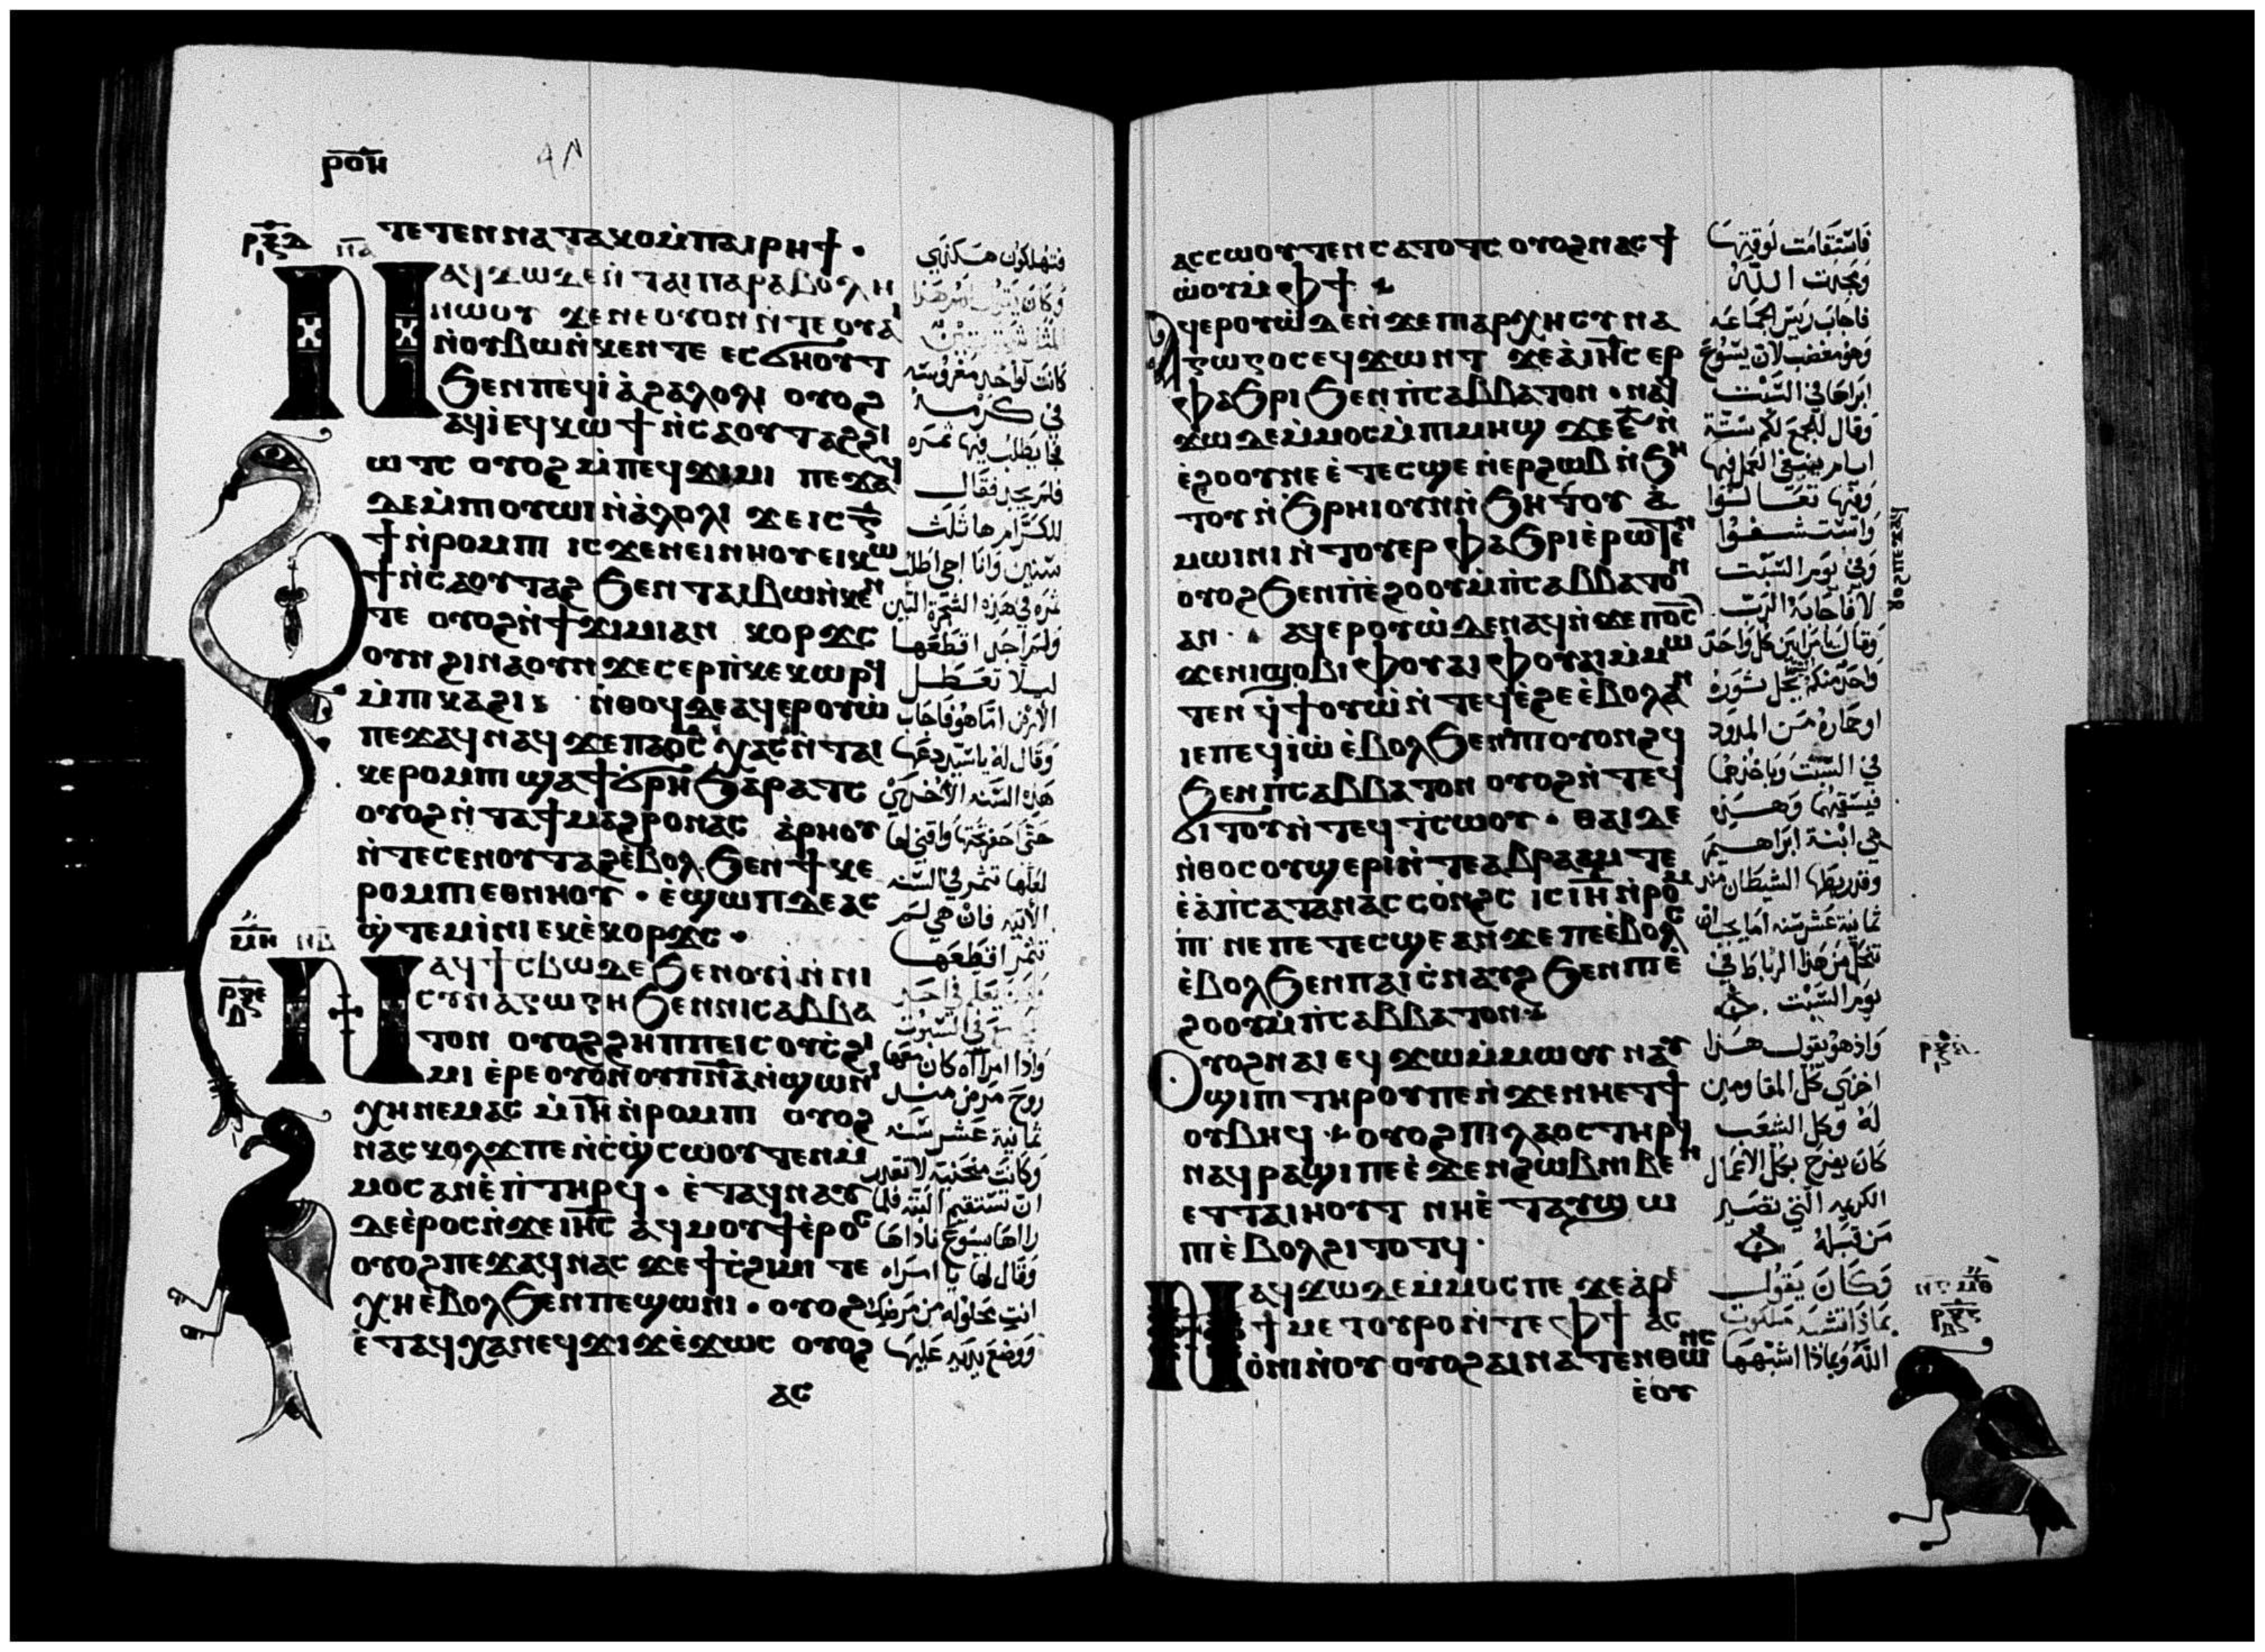 ⲣⲟⲏ
ⲧⲉⲧⲉⲛⲛⲁⲧⲁⲕⲟⲙ̀ⲡⲁⲓⲣⲏϯ ·
ⲛⲁϥϫⲱⲇⲉⲛ̀ⲧⲁⲓⲡⲁⲣⲁⲃⲟⲗⲏ
ⲛⲱⲟⲩ ϫⲉⲛⲉⲟⲩⲟⲛⲛ̀ⲧⲉⲟⲩⲁⲓ
ⲛ̀ⲟⲩⲃⲱⲛ̀ⲕⲉⲛⲧⲉ ⲉⲥϭⲏⲟⲩⲧ
ϧⲉⲛⲡⲉϥⲓⲁ̀ϩⲁⲗⲟⲗⲓ ⲟⲩⲟϩ
ⲁϥⲓ̀ⲉϥⲕⲱϯⲛ̀ⲥⲁⲟⲩⲧⲁϩϩⲓ
ⲱⲧⲥ ⲟⲩⲟϩⲙ̀ⲡⲉϥϫⲓⲙⲓ ⲡⲉϫⲁϥ
ⲇⲉⲙ̀ⲡⲓⲟⲩⲱⲓⲛ̀ⲁ̀ⲗⲟⲗⲓ ϫⲉⲓⲥⲅ̅
ϯⲛ̀ⲣⲟⲙⲡⲓ ⲓⲥϫⲉⲛⲉⲓⲛⲏⲟⲩⲉⲓⲕⲱ
ϯⲛ̀ⲥⲁⲟⲩⲧⲁϩ ϧⲉⲛⲧⲁⲓⲃⲱⲛ̀ⲕⲉⲛ
ⲧⲉ ⲟⲩⲟϩⲛ̀ϯϫⲓⲙⲓⲁⲛ ⲕⲟⲣϫⲥ
ⲟⲩⲛϩⲓⲛⲁⲟⲩⲛ ϫⲉⲥⲉⲣⲡ̀ⲕⲉⲕⲱⲣϥ
ⲙ̀ⲡⲓⲕⲁϩⲓ ⲛ̀ⲑⲟϥⲇⲉⲁϥⲉⲣⲟⲩⲱ̀
ⲡⲉϫⲁϥⲛⲁϥϫⲉⲡⲁϭⲥ̅ ⲭⲁⲥⲛ̀ⲧⲁⲓ
ⲕⲉⲣⲟⲙⲡⲓ ϣⲁϯϭⲣⲏϧⲁⲣⲁⲧⲥ
ⲟⲩⲟϩⲛ̀ⲧⲁϯⲙⲁϩⲣⲟⲛⲁⲥ ⲁ̀ⲣⲏⲟⲩ
ⲛ̀ⲧⲉⲥⲉⲛⲟⲩⲧⲁϩⲉ̀ⲃⲟⲗϧⲉⲛϯⲕⲉ
ⲣⲟⲙⲡⲓⲉⲑⲛⲏⲟⲩ · ⲉ̀ϣⲱⲡⲇⲉⲁⲥ
ϣ̀ⲧⲉⲙⲓ̀ⲛⲓⲉⲕⲉ̀ⲕⲟⲣϫⲥ ·
ⲛⲁϥϯⲥⲃⲱⲇⲉϧⲉⲛⲟⲩⲓ̀ⲛ̀ⲛⲓ
ⲥⲩⲛⲁⲅⲱⲅⲏϧⲉⲛⲛⲓⲥⲁⲃⲃⲁ
ⲧⲟⲛ ⲟⲩⲟϩϩⲏⲡⲡⲉⲓⲥⲟⲩⲥ̀ϩⲓ
ⲙⲓ ⲉ̀ⲣⲉⲟⲩⲟⲛⲟⲩⲡⲛ̅ⲁ̅ⲛ̀ϣⲱⲛⲓ
ⲭⲏⲛⲉⲙⲁⲥ ⲙ̀ⲓ̅ⲏ̅ⲛ̀ⲣⲟⲙⲡⲓ ⲟⲩⲟϩ
ⲛⲁⲥⲕⲟⲗϫⲡⲉⲛ̀ⲥϣ̀ⲥⲱⲟⲩⲧⲉⲛⲙ̀
ⲙⲟⲥⲁⲛⲉ̀ⲡ̀ⲧⲏⲣϥ · ⲉ̀ⲧⲁϥⲛⲁⲩ
ⲇⲉⲉ̀ⲣⲟⲥⲛ̀ϫⲉⲓⲏⲥ̅ ⲁϥⲙⲟⲩϯⲉ̀ⲣⲟⲥ
ⲟⲩⲟϩⲡⲉϫⲁϥⲛⲁⲥ ϫⲉϯⲥ̀ϩⲓⲙⲓ ⲧⲉ
ⲭⲏⲉ̀ⲃⲟⲗϧⲉⲛⲡⲉϣⲱⲛⲓ · ⲟⲩⲟϩ
ⲉ̀ⲧⲁϥⲭⲁⲛⲉϥϫⲓϫⲉ̀ϫⲱⲥ ⲟⲩⲟϩ
ⲁⲥ
فتهلكون هكذي
وكان يقول لهم هذا
المثل شجرة تين
كانت لواحد مغروسه
في كرمه
فجا يطلب فيها ثمره
فلم يجد فقال
للكرام ها ثلث
سنين وانا اجي اطلب
ثمره في هذه الشجرة التين
ولم اجد اقطعها
ليلا تعطل
الارض اما هو فاجاب
وقال له يا سيد دعها
هذه السنه الاخري
حتي احفر تحتها واقني لها
لعلها تثمر في السنه
الاتيه فان هي لم
تثمر اقطعها
في السبوت
واذا امراه كان معها
روح مرض منذ
ثمانية عشر سنه
وكانت منحنيه لا تقدر
ان تستقيم البته فلما
راها يسوع ناداها
وقال لها يا امراه
انت محلوله من مرضك
ووضع يديه عليها
ⲁⲥⲥⲱⲟⲩⲧⲉⲛⲥⲁⲧⲟⲧⲥ ⲟⲩⲟϩⲛⲁⲥϯ
ⲱ̀ⲟⲩⲙ̀ⲫϯ
ⲁϥⲉⲣⲟⲩⲱ̀ⲇⲉⲛ̀ϫⲉⲡⲓⲁⲣⲭⲏⲥⲩⲛⲁ
ⲅⲱⲅⲟⲥⲉϥϫⲱⲛⲧ ϫⲉⲁ̀ⲓⲏⲥ̅ ⲉⲣ
ⲫⲁϧⲣⲓϧⲉⲛⲡ̀ⲥⲁⲃⲃⲁⲧⲟⲛ · ⲛⲁϥ
ϫⲱⲇⲉⲙ̀ⲙⲟⲥⲙ̀ⲡⲓⲙⲏϣ ϫⲉⲋ̅ⲛ̀
ⲉ̀ϩⲟⲟⲩⲛⲉⲉ̀ⲧⲉⲥϣⲉⲛ̀ⲉⲣϩⲱⲃⲛ̀ϧⲏ
ⲧⲟⲩⲛ̀ϩⲣⲏⲓⲟⲩⲛⲛ̀ϧⲏⲧⲟⲩ ⲁ̀
ⲙⲱⲓⲛⲓⲛ̀ⲧⲟⲩⲉⲣⲫⲁϧⲣⲓⲉ̀ⲣⲱⲧⲉⲛ
ⲟⲩⲟϩϧⲉⲛⲡⲉ̀ϩⲟⲟⲩⲙ̀ⲡ̀ⲥⲁⲃⲃⲁⲧⲟⲛ
ⲁⲛ · ⲁϥⲉⲣⲟⲩⲱ̀ⲇⲉⲛⲁϥⲛ̀ϫⲉⲡϭⲥ̅
ϫⲉⲛⲓϣⲟⲃⲓ ⲫⲟⲩⲁⲓⲫⲟⲩⲁⲓⲙ̀ⲙⲱ
ⲧⲉⲛ ϥ̀ϯⲟⲩⲱ̀ⲛ̀ⲧⲉϥⲉ̀ϩⲉⲉ̀ⲃⲟⲗⲁⲛ
ⲓⲉⲡⲉϥⲓⲱ̀ⲉ̀ⲃⲟⲗϧⲉⲛⲡⲓⲟⲩⲟⲛϩϥ
ϧⲉⲛⲡ̀ⲥⲁⲃⲃⲁⲧⲟⲛ ⲟⲩⲟϩⲛ̀ⲧⲉϥ
ϭⲓⲧⲟⲩⲛ̀ⲧⲉϥⲧ̀ⲥⲱⲟⲩ · ⲑⲁⲓⲇⲉ
ⲛ̀ⲑⲟⲥⲟⲩϣⲉⲣⲓⲛ̀ⲧⲉⲁⲃⲣⲁⲁⲙ ⲧⲉ
ⲉ̀ⲁ̀ⲡ̀ⲥⲁⲧⲁⲛⲁⲥⲥⲟⲛϩⲥ ⲓⲥⲓ̅ⲏ̅ⲛ̀ⲣⲟⲙ
ⲡⲓ ⲛⲉⲡⲉⲧⲉⲥϣⲉⲁⲛϫⲉⲡⲉⲉ̀ⲃⲟⲗⲥ
ⲉ̀ⲃⲟⲗϧⲉⲛⲡⲁⲓⲥ̀ⲛⲁⲩϩ ϧⲉⲛⲡⲓⲉ̀
ϩⲟⲟⲩⲙ̀ⲡ̀ⲥⲁⲃⲃⲁⲧⲟⲛ
ⲟⲩⲟϩⲛⲁⲓ ⲉϥϫⲱⲙ̀ⲙⲱⲟⲩ ⲛⲁⲩ
ϭ̀ϣⲓⲡⲓ ⲧⲏⲣⲟⲩⲡⲉⲛ̀ϫⲉⲛⲏⲉⲧϯ
ⲟⲩⲃⲏϥ ⲟⲩⲟϩⲡⲓⲗⲁⲟⲥⲧⲏⲣϥ
ⲛⲁϥⲣⲁϣⲓⲡⲉⲉ̀ϫⲉⲛϩⲱⲃⲛⲓⲃⲉⲛ
ⲉⲧⲧⲁⲓⲏⲟⲩⲧ ⲛⲏⲉ̀ⲧⲁⲩϣⲱ
ⲡⲓⲉ̀ⲃⲟⲗϩⲓⲧⲟⲧϥ ·
ⲛⲁϥϫⲱⲇⲉⲙ̀ⲙⲟⲥⲡⲉ ϫⲉⲁ̀ⲣⲉ
ϯⲙⲉⲧⲟⲩⲣⲟⲛ̀ⲧⲉⲫϯ ⲁⲥ
ⲟ̀ⲛⲓⲛ̀ⲟⲩ ⲟⲩⲟϩⲁⲓⲛⲁⲧⲉⲛⲑⲱⲛⲥ
ⲉ̀ⲟⲩ
فاستقامت لوقتها
ومجدت الله
فاجاب ريس الجماعه
وهو مغضب لان يسوع
ابراها في السبت
وقال للجمع لكم ستة
ايام ينبغي العمل فيها
وفيها تعالوا
واستشفوا
وفي يوم السبت
لا فاجابه الرب
وقال يا مرايين كل واحد
واحد منكم يحل ثوره
او حماره من المدود
في السبت وياخذهما
فيسقيهما وهذه
هي ابنة ابراهيم
وقد ربطها الشيطان منذ
ثمانية عشر سنه اما يجب ان
تنحل من هذا الرباط في
يوم السبت
واذ هو يقول هذا
اخزي كل المقاومين
له وكل الشعب
كان يفرح بكل الاعمال
الكريمه التي تصير
من قبله
وكان يقول
بماذا تشبه ملكوت
الله وبماذا اشبهها